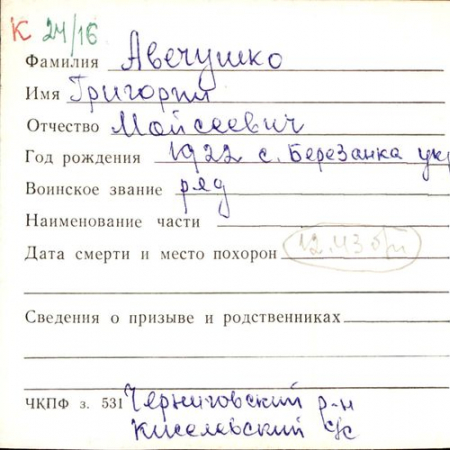 К 24/16
Фамилия Авечушко
Имя Григорий
Отчество Мойсеевич
Год рождения 1922 с. Березанка укр
Воинское звание ряд
Наименование части
Дата смерти и место похорон 12.43 б/и
Сведения о призыве и родственниках
ЧКПФ з. 531 Черниговский р-н
Киселевский с/с